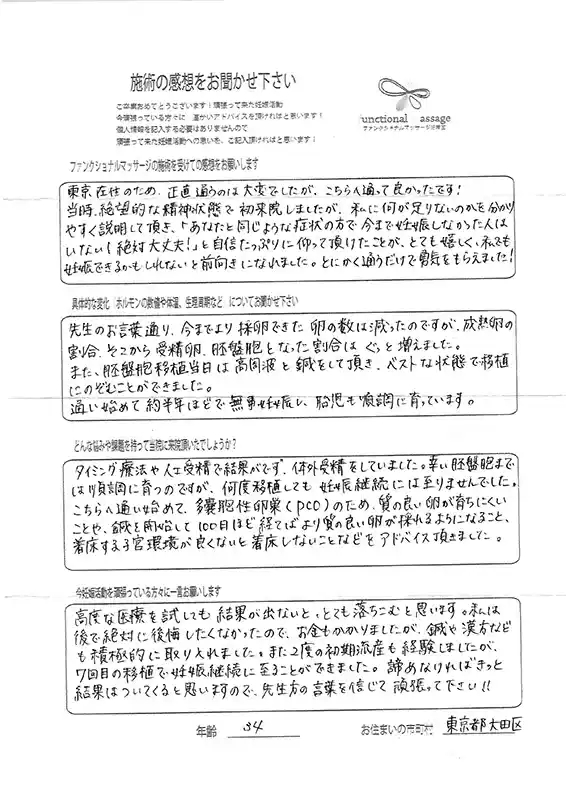 施術の感想をお聞かせ下さい
ご卒業おめでとうございます！頑張って来た妊娠活動
今頑張っている方々に 温かいアドバイスを頂ければと思います！
個人情報を記入する必要はありませんので
頑張って来た妊娠活動への思いを、ご記入頂ければと思います！
unctional assage
ファンクショナルマッサージ
ファンクショナルマッサージの施術を受けての感想をお願いします
東京在住のため、正直通うのは大変でしたが、こちらへ通って良かったです！
当時、絶望的な精神状態で初来院しましたが、私に何が足りないのかを分かり
やすく説明して頂き、「あなたと同じような症状の方で今まで妊娠しなかった人は
いない！絶対大丈夫！」と自信たっぷりに仰って頂けたことが、とても嬉しく、私でも
妊娠できるかもしれないと前向きになれました。とにかく通うだけで勇気をもらえました！
具体的な変化 ホルモンの数値や体温、生理周期など についてお聞かせ下さい
先生のお言葉通り、今までより採卵できた卵の数は減ったのですが、成熟卵の
割合、そこから受精卵、胚盤胞となった割合はぐっと増えました。
また、胚盤胞移植当日は高周波と鍼をして頂き、ベストな状態で移植
にのぞむことができました。
通い始めて約半年ほどで無事妊娠し、胎児も順調に育っています。
どんな悩みや課題を持って当院に来院頂いたでしょうか？
タイミング療法や人工受精で結果がでず、体外受精をしていました。幸い胚盤胞まで
は順調に育つのですが、何度移植しても妊娠継続には至りませんでした。
こちらへ通い始めて、多嚢胞性卵巣（PCO）のため、質の良い卵が育ちにくい
ことや、鍼を開始して100日ほど経てばより質の良い卵が採れるようになること、
着床する子宮環境が良くないと着床しないことなどをアドバイス頂きました。
今妊娠活動を頑張っている方々に一言お願いします
高度な医療を試しても結果が出ないと、とても落ちこむと思います。私は
後で絶対に後悔したくなかったので、お金もかかりましたが、鍼や漢方など
も積極的に取り入れました。また2度の初期流産も経験しましたが、
7回目の移植で妊娠継続に至ることができました。諦めなければきっと
結果はついてくると思いますので、先生方の言葉を信じて頑張って下さい!!
年齢 34 お住まいの市町村 東京都大田区